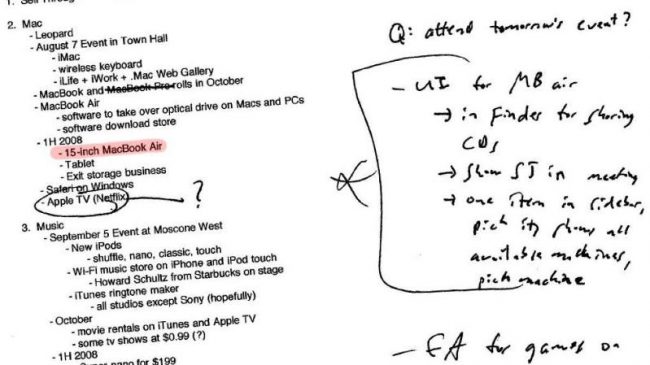 2. Mac
- Leopard
- August 7 Event in Town Hall
- iMac
- wireless keyboard
- iLife + iWork + .Mac Web Gallery
- MacBook and MacBook Pro rolls in October
- MacBook Air
- software to take over optical drive on Macs and PCs
- software download store
- 1H 2008
- 15-inch MacBook Air
- Tablet
- Exit storage business
- Safari on Windows
- Apple TV (Netflix) ?
3. Music
- September 5 Event at Moscone West
- New iPods
- shuffle, nano, classic, touch
- Wi-Fi music store on iPhone and iPod touch
- Howard Schultz from Starbucks on stage
- iTunes ringtone maker
- all studios except Sony (hopefully)
- October
- movie rentals on iTunes and Apple TV
- some tv shows at $0.99 (?)
- 1H 2008
nano for $199
Q: attend tomorrow's event?
- UI for MB air
→ in Finder for sharing
CDs
→ Show SJ in meeting
→ one item in sidebar,
pick it, shows all
available machines,
pick machine
- EA for games on